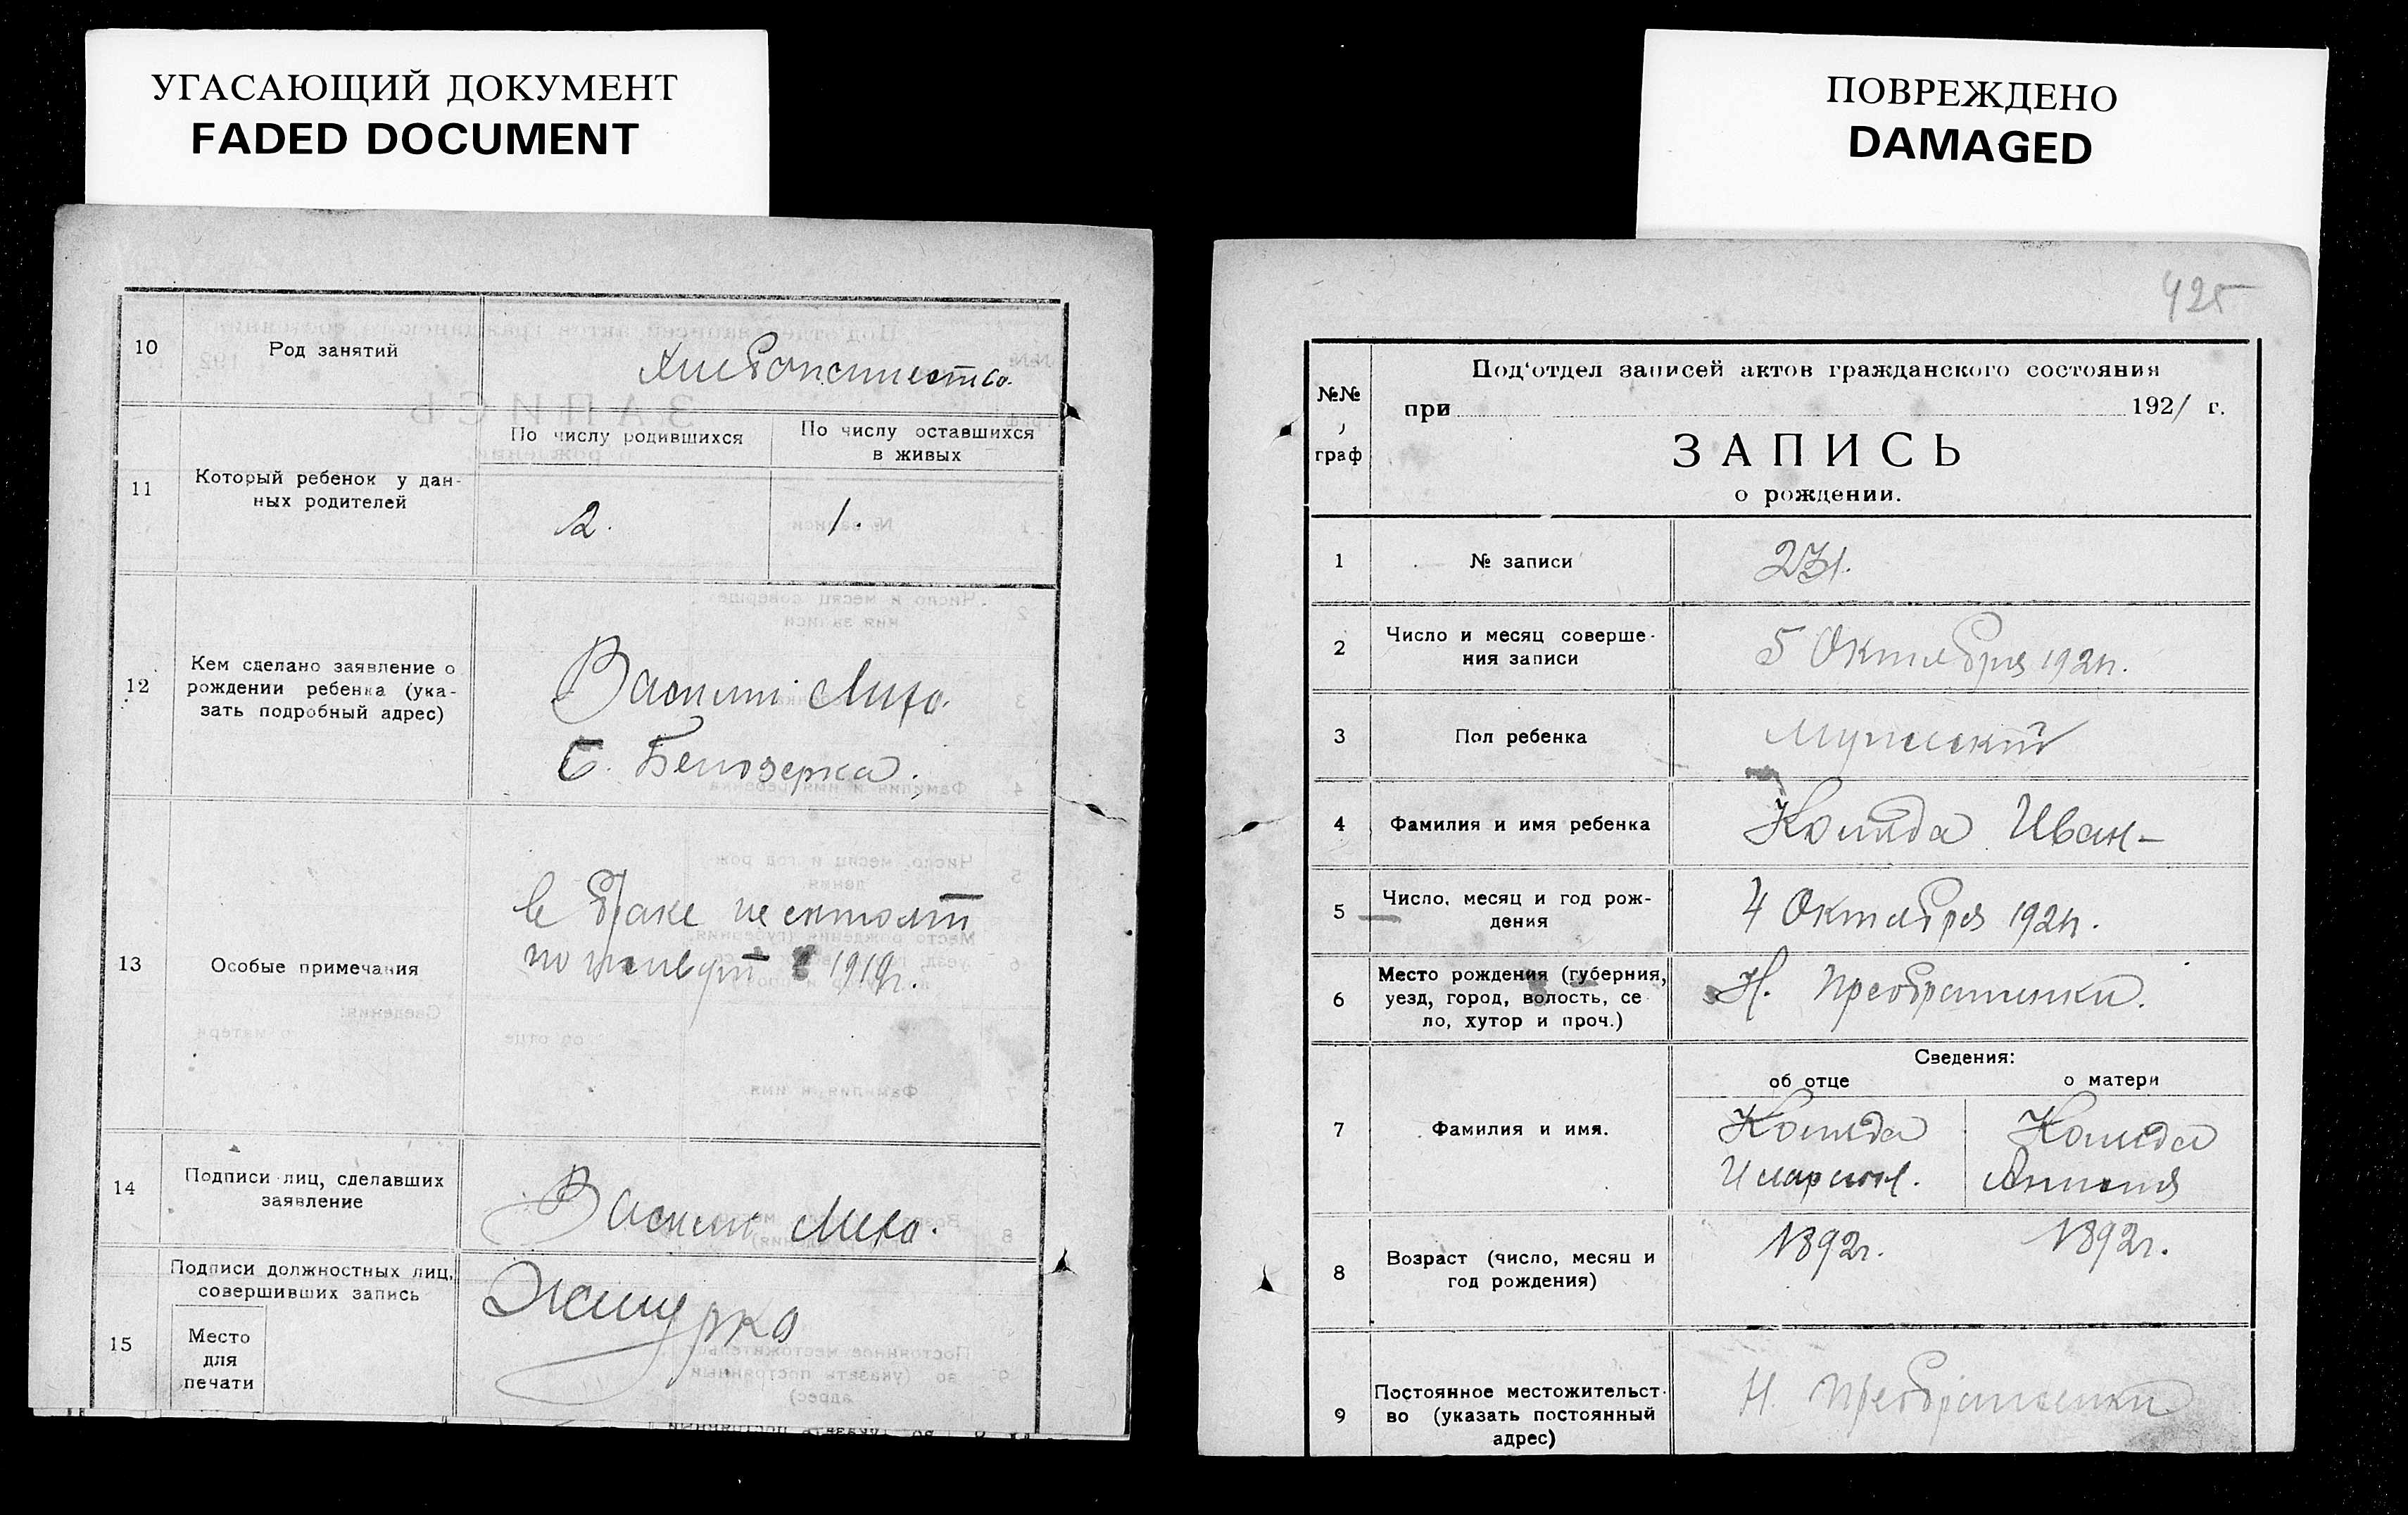 УГАСАЮЩИЙ ДОКУМЕНТ
FADED DOCUMENT
10 Род занятий
Хлебопашество.
11 Который ребенок у дан-
ных родителей
По числу родившихся
По числу оставшихся
в живых
2.
1.
12 Кем сделано заявление о
рождении ребенка (ука-
зать подробный адрес)
Василий Михо.
С. Белозерка.
13 Особые примечания
в браке не состоят
по 1919г.
14 Подписи лиц, сделавших
заявление
Василий Михо.
15 Подписи должностных лиц,
совершивших запись
Место
для
печати
ПОВРЕЖДЕНО
DAMAGED
425
№№
граф
Под'отдел записей актов гражданского состояния
при 1921 г.
ЗАПИСЬ
о рождении.
1 № записи
231.
2 Число и месяц соверше-
ния записи
5 Октября 1921г.
3 Пол ребенка
Мужской
4 Фамилия и имя ребенка
Коляда Иван
5 Число, месяц и год рож-
дения
4 Октября 1921г.
6 Место рождения (губерния,
уезд, город, волость, се
ло, хутор и проч.)
Н. Преображенки.
Сведения:
об отце
о матери
7 Фамилия и имя.
Коляда
Иларион.
Коляда
8 Возраст (число, месяц и
год рождения)
1892г.
1892г.
9 Постоянное местожительст-
во (указать постоянный
адрес)
Н. Преображенки